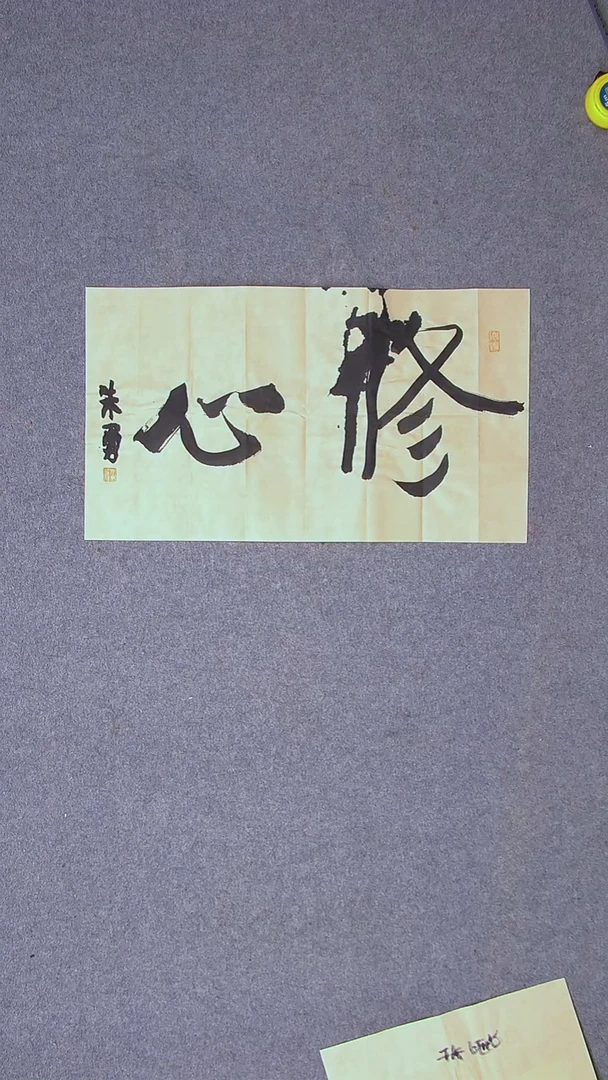 修心
朱勇